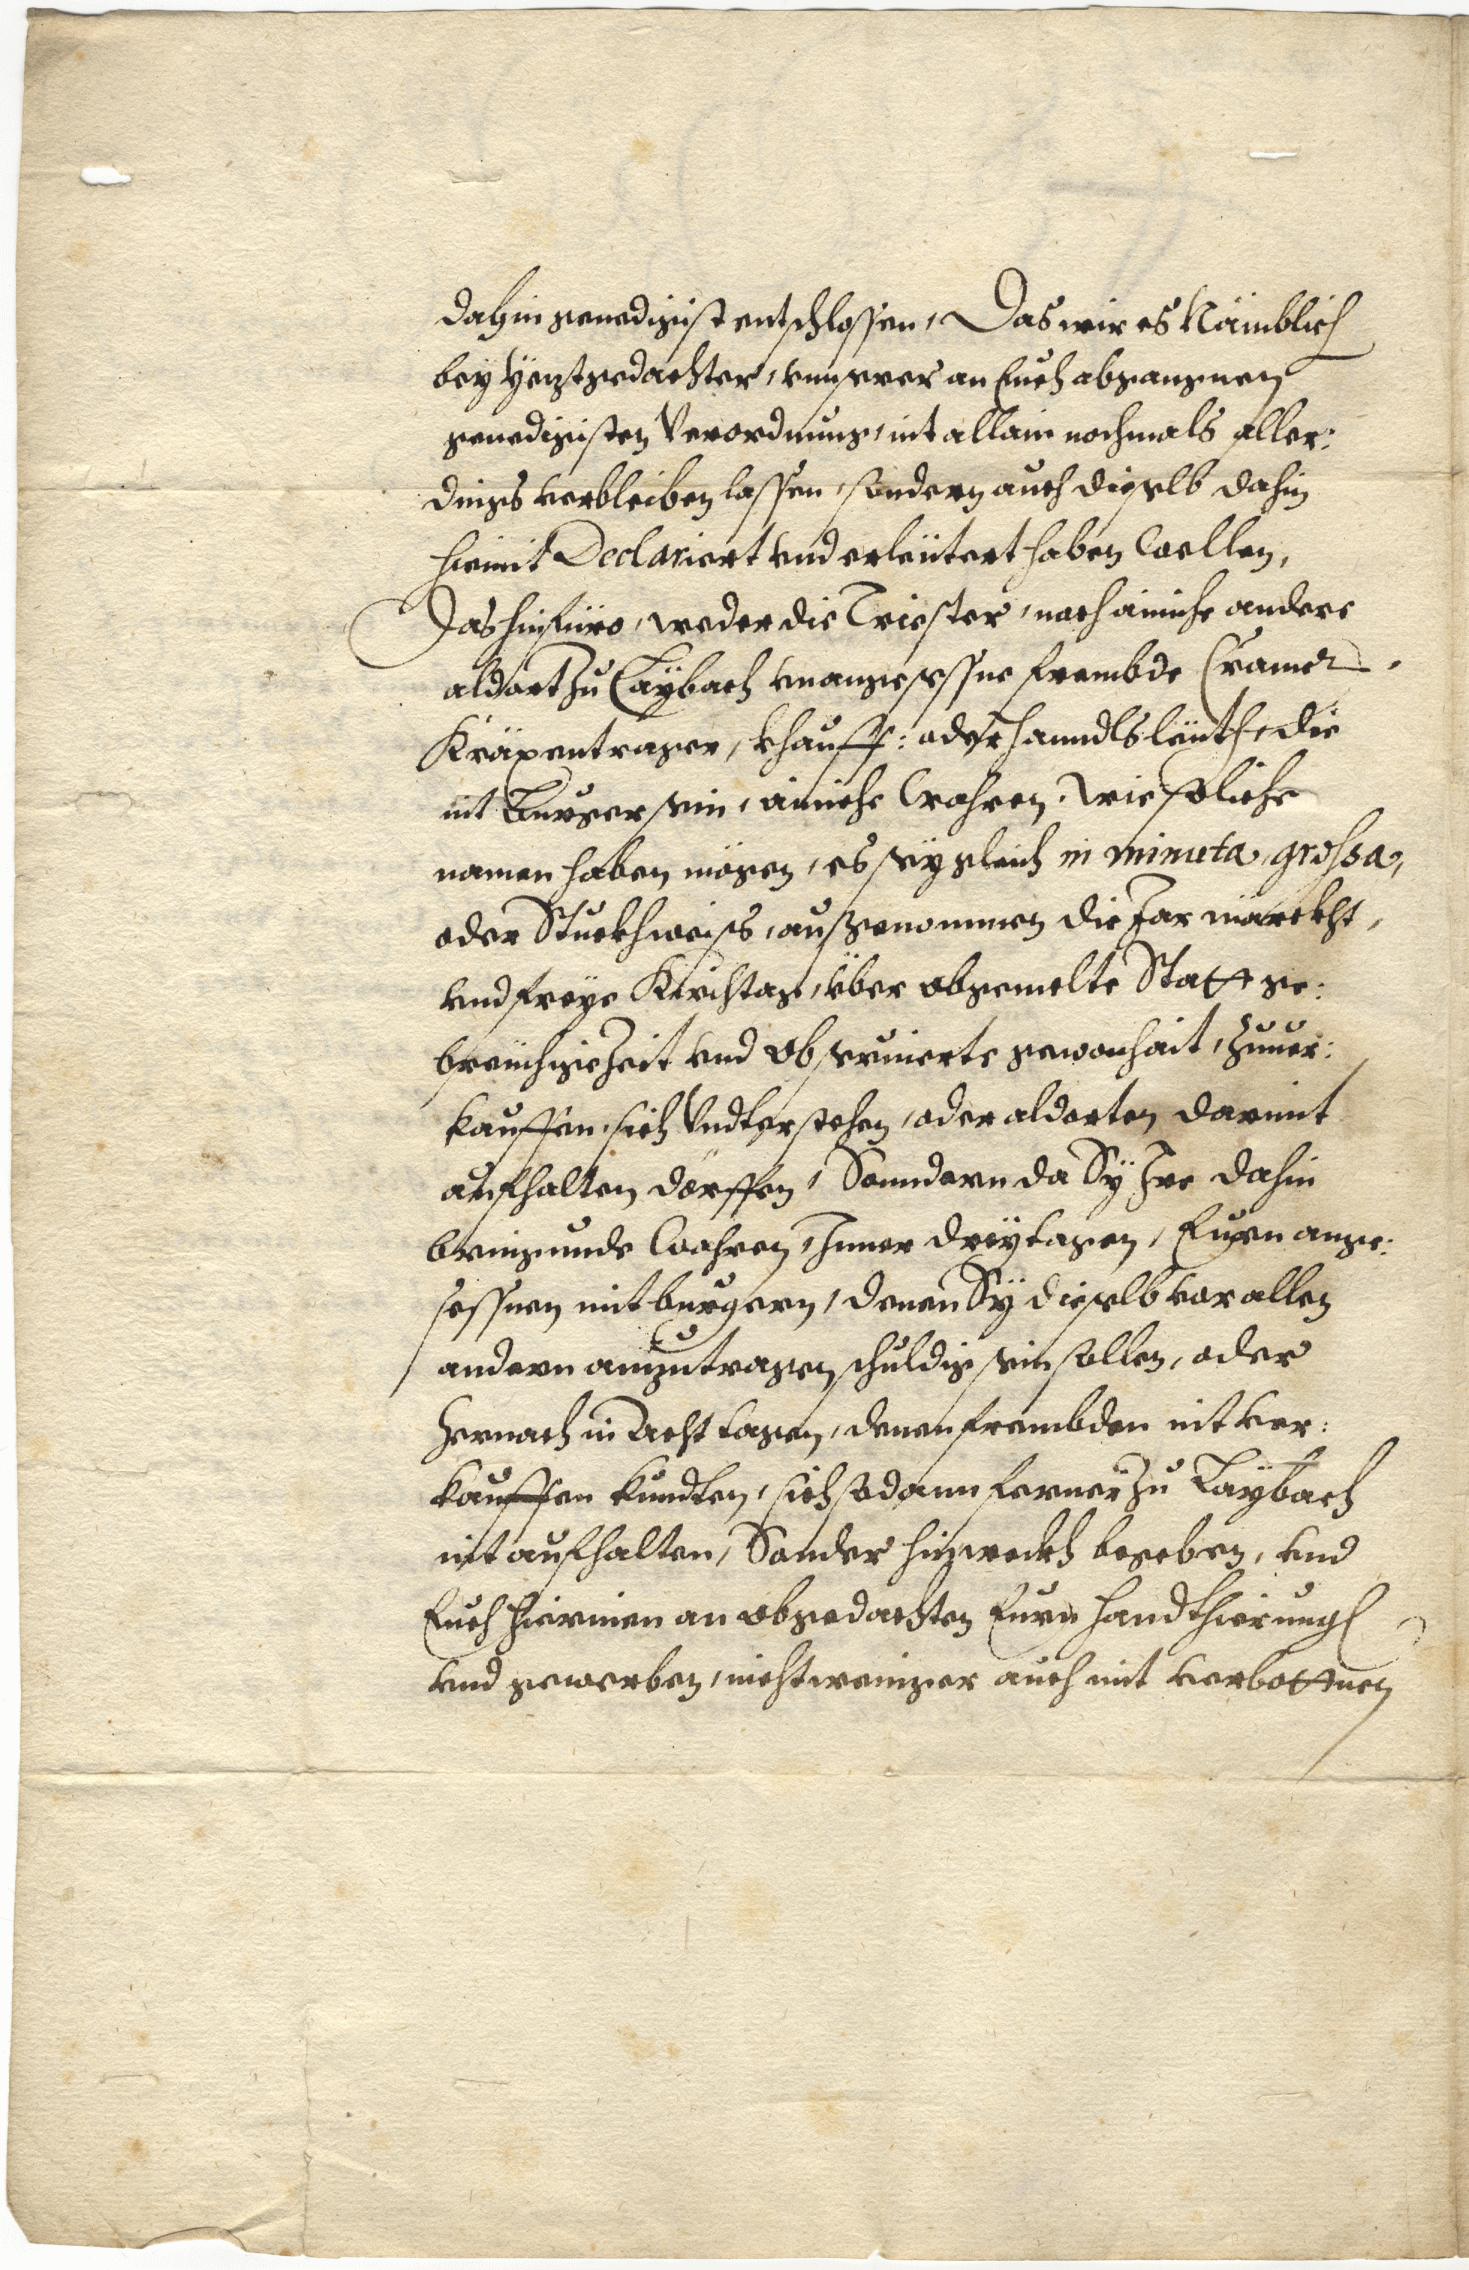 dahin genedigist entschlossen, Das wir es Nämblich
bey yeztgedachter, vnnserer an Euch abgangnen
genedigisten Verordnung, nit allain nochmals aller:
dings verbleiben lassen, sondern auch dieselb dahin
hiemit Declariert vnd erleütert haben wellen,
Das hinfüro, weder die Triester, noch ainiche andere
aldort zu Laybach vnangesessne frembde Cramer,
Kräxentrager, khauff: oder hanndlsleüth, die
nit Burger sein, ainiche Wahren, wie solliche
namen haben mögen, es sey gleich in minuta, grossa,
oder Stuckhweiss, aussgenommen die Jar märckht,
vnd freye Kirchtag, über obgemelte Statt ge:
breüchige Zeit vnd obseruierte gewonhait, zuuer:
kauffen, sich Vndterstehen, oder aldorten darmit
aufhalten dörffen, Sonndern da Sy Ire dahin
bringunde Wahren, Inner drey tagen, Eurn ange:
sessnen mitburgern, denen Sy dieselb vor allen
andern anzutragen schuldig sein sollen, oder
hernach in Acht tagen, denen frembden nit ver:
kauffen kundten, sich sodann ferner zu Laybach
nit aufhalten, Sonder hinweckh begeben, vnd
Euch hierinen an obgedachten Eurn handthierung
vnd gewerben, nicht weniger auch mit verbottnen